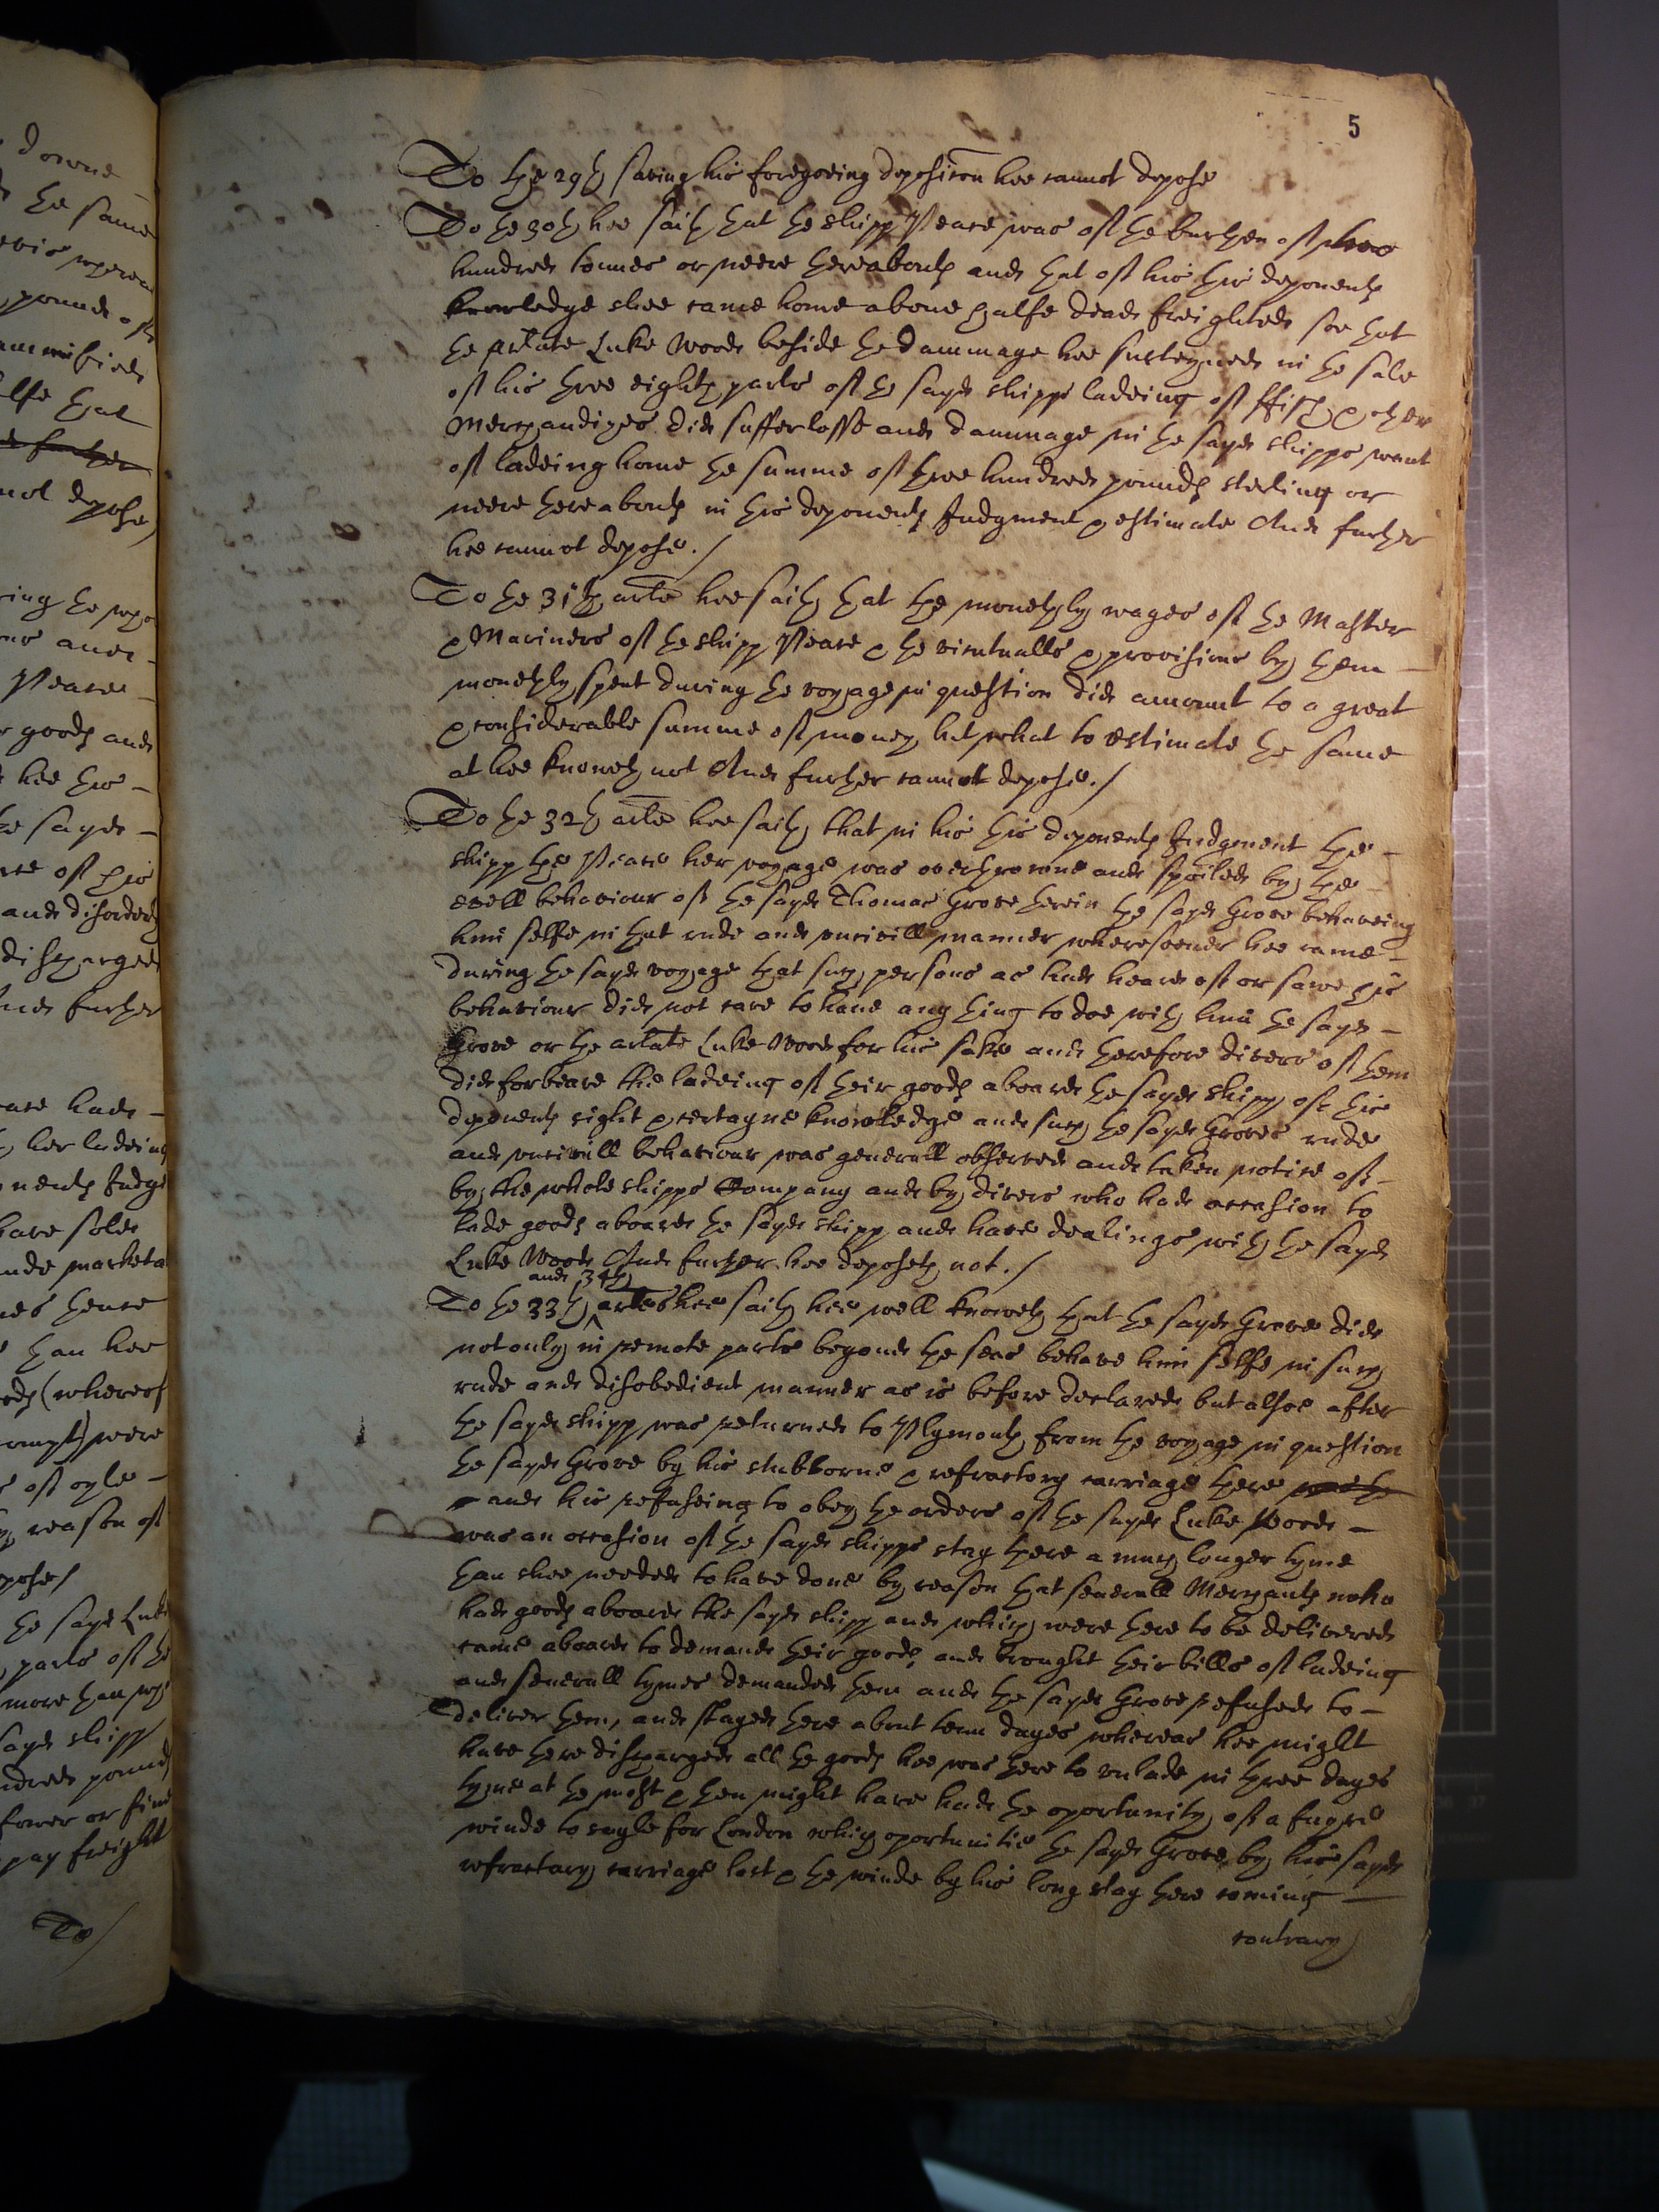 downe
5
the same
wherein
pounds of
that
further
not depose
goods and
hee this
the sayd
and disorderly
discharged
And further
have sold
hence
than hee
(whereof
were
of oyle
reason of
the sayd Luke
parts of the
more than
sayd shipp
hundred pounds
fower or five
pay freight
To
To the 29th saving his foregoeing deposition hee cannot depose
To the 30th hee saith that the shipp Peace was of the burthen of two
hundred tonnes or neere thereabouts and that of his this deponents
knowledge shee came home above halfe dead freighted soe that
the arlate Luke Wood beside the dammage hee susteyned in the sale
of his three eighth parts of the sayd shipps ladeing of ffish & other
Merchandizes did suffer losse and dammage in the sayd shipps want
of ladeing home the summe of three hundred pounds sterling or
neere thereabouts in this deponents Judgment & estimate And further
hee cannot depose./
To the 31th arle hee saith that the monethly wages of the Master
& Mariners of the shipp Peace & the victualls & provisions by them
monethly spent during the voyage in question did amount to a great
& considerable summe of money but what to estimate the same
at hee knoweth not And further cannot depose./
To the 32th arle hee saith that in his this deponents Judgment the
shipp the Peace her voyage was overthrowne and spoiled by the
evill behaviour of the sayd Thomas Grove therein the sayd Grove behaveing
him selfe in that rude and uncivill manner wheresoever hee came
during the sayd voyage that such persons as had heard of or sawe his
behaviour did not care to have any thing to doe with him the sayd
Grove or the arlate Luke Wood for his sake and therefore divers of them
did forbeare the ladeing of their goods aboard the sayd shipp, of this
deponents sight & certayne knowledge and such the sayd Groves rude
and uncivill behaviour was generall observed and taken notice of
by the whole shipps Company and by divers who had occasion to
lade goods aboard the sayd shipp and have dealings with the sayd
Luke Wood And further hee deposeth not./
and 34th
To the 33th arles hee saith hee well knoweth that the sayd Grove did
not only in remote parts beyond the seas behave him selfe in such
rude and disobedient manner as is before declared but alsoe after
the sayd shipp was returned to Plymouth from the voyage in question
the sayd Grove by his stubborne & refractory carriage there
and his refuseing to obey the orders of the sayd Luke Wood
was an occasion of the sayd shipps stay there a much longer tyme
than shee needed to have done by reason that severall Merchants who
had goods aboard the sayd shipp and which were there to be delivered
came aboard to demand their goods, and brought their bills of ladeing
and severall tymes demanded them and the sayd Grove refused to
deliver them, and stayed there about tenn dayes whereas hee might
have there discharged all the goods hee was there to unlade in three dayes
tyme at the most & then might have had the oportunity of a fayre
winde to sayle for London which oportunitie the sayd Grove by his sayd
refractary carriage lost & the winde by his long stay there coming
contrary